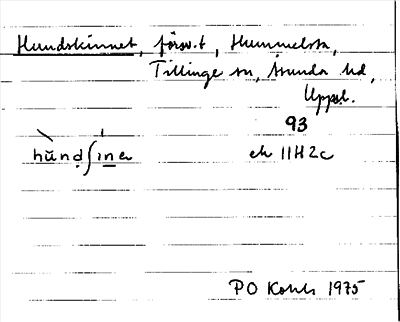 Hundskinnet, försv.t, Hummelsta,
Tillinge sn, Åsunda hd,
Uppsl.
93
hùnd∫ìnea
ek 11H2c
PO Kohls 1975